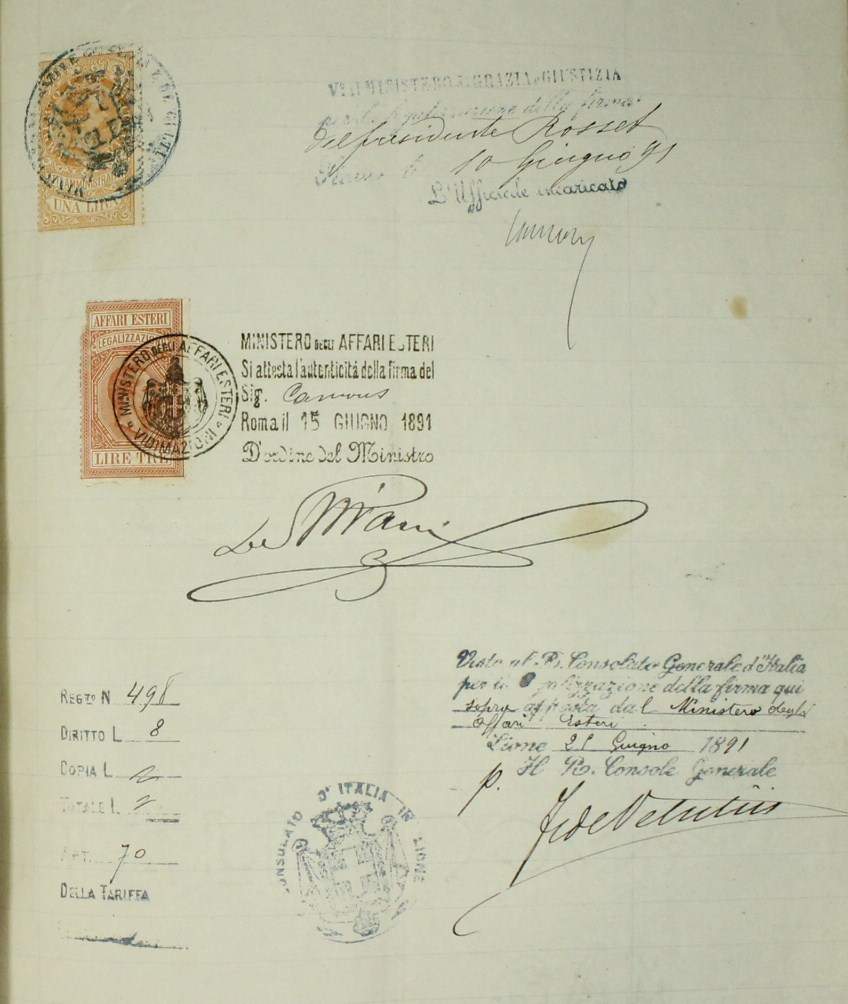 UNA LIRA
MINISTERO GRAZIA E GIUSTIZIA
legalizzazione della firma
del presidente Rosset
10 Giugno 91
L'Ufficiale incaricato
AFFARI ESTERI
LEGALIZZAZI
LIRE TRE
MINISTERO DEGLI AFFARI ESTERI
VIDIMAZIONI
MINISTERO DEGLI AFFARI ESTERI
Si attesta l'autenticità della firma del
Sig.
Roma il 15 GIUGNO 1891
D'ordine del Ministro
REGTO N 498
DIRITTO L 8
COPIA L
TOTALE L
ART. 70
DELLA TARIFFA
CONSOLATO D'ITALIA IN LIONE
Visto al R. Consolato Generale d'Italia
per la legalizzazione della firma qui
sopra apposta dal Ministero degli
Affari Esteri.
Lione 21 Giugno 1891
p. Il R. Console Generale